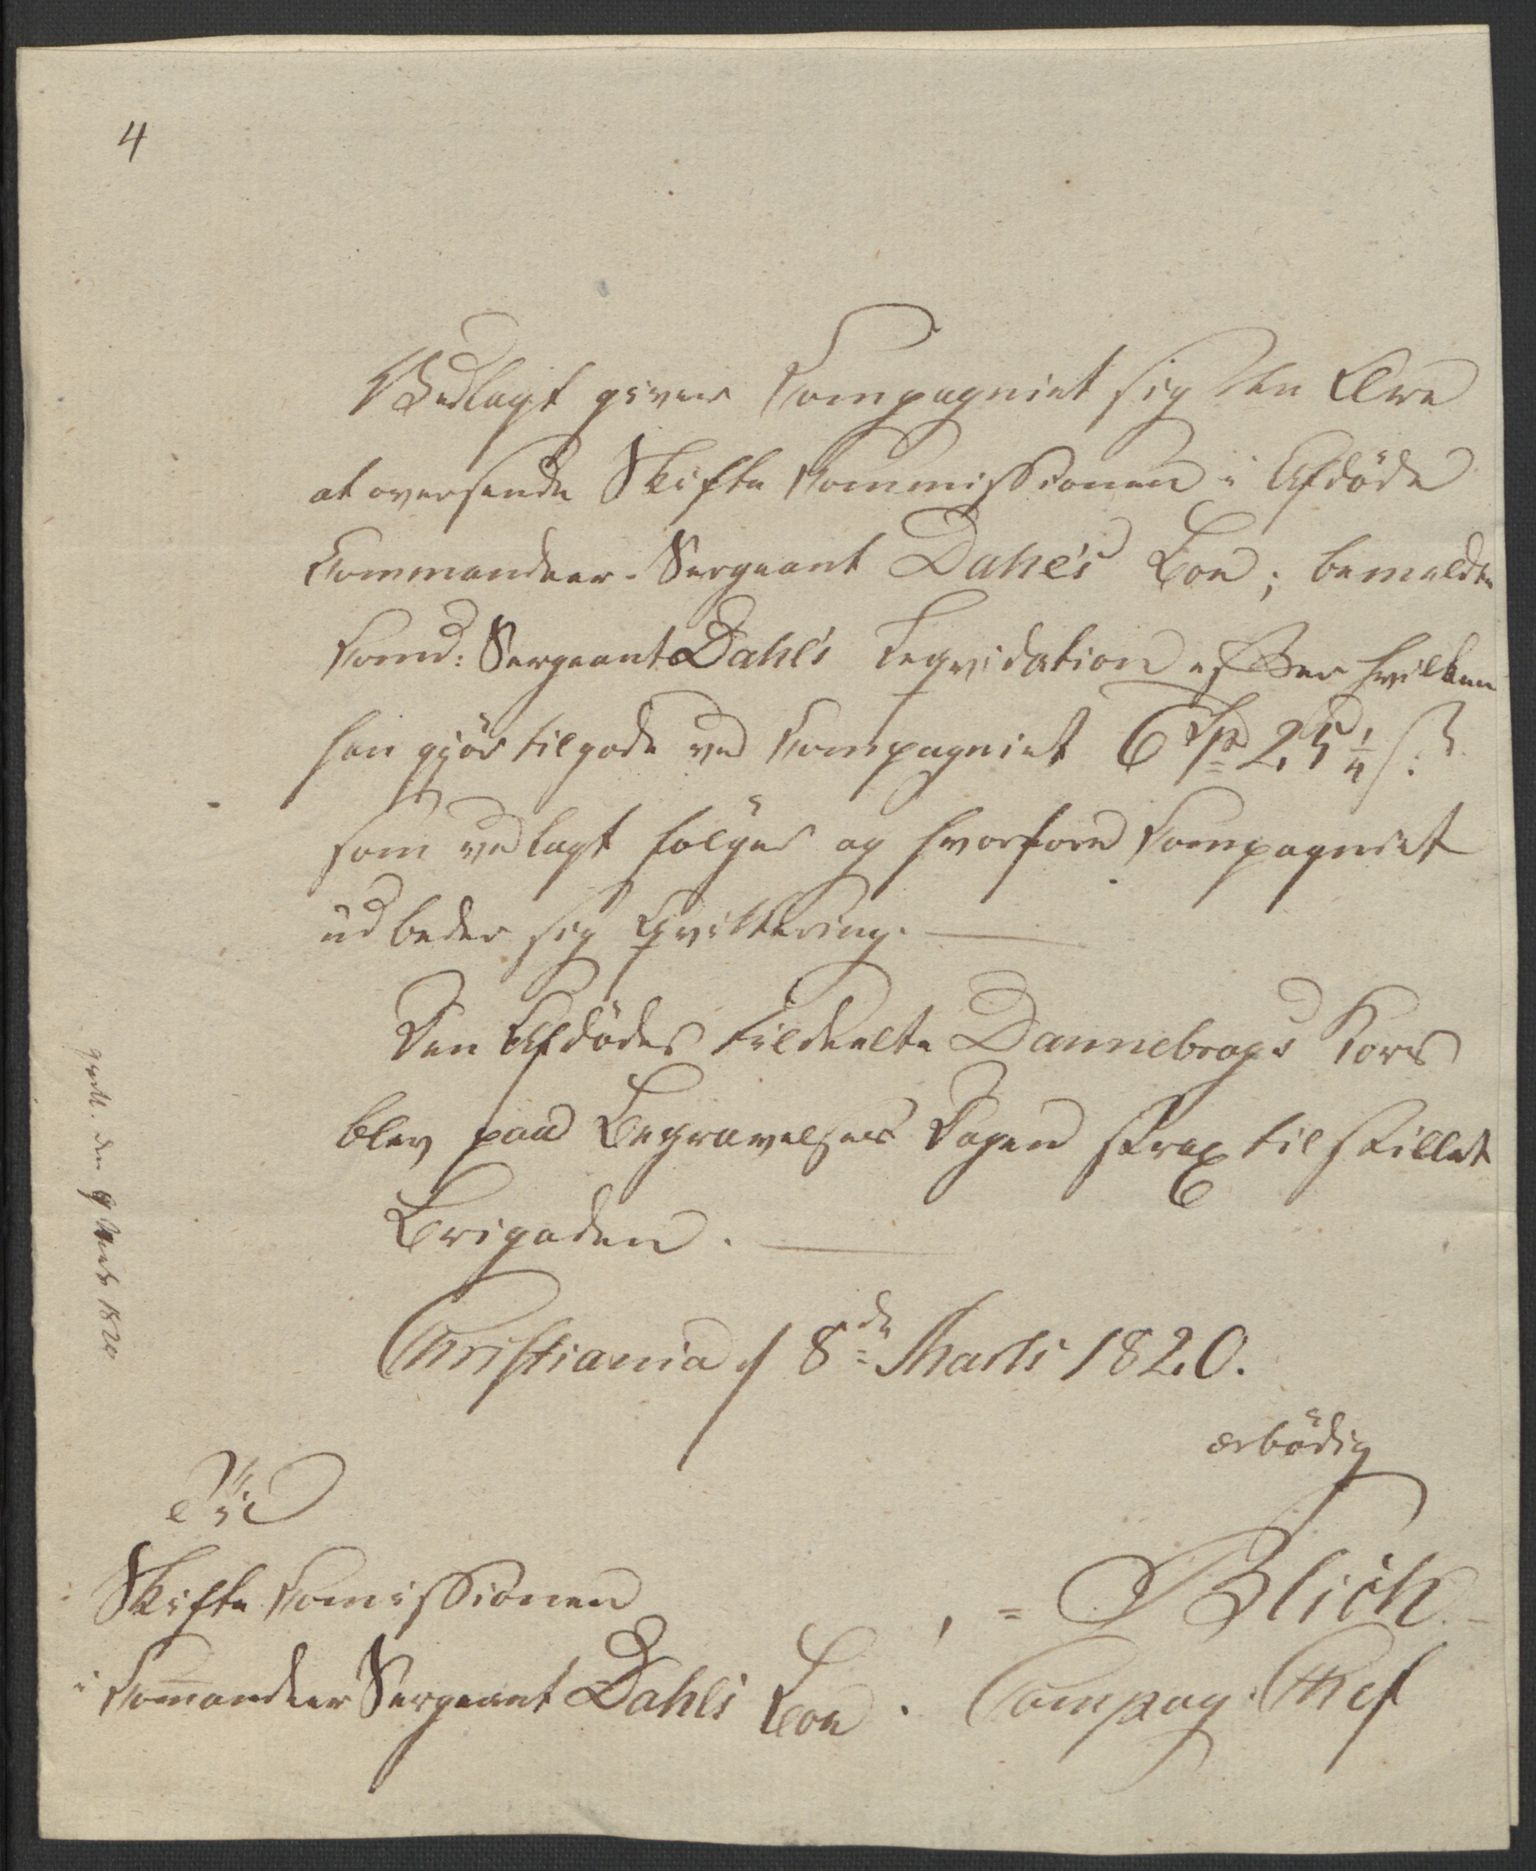 4
Vedlagt giver Kompagniet sig den Ære
at oversende Skifte Kommissionen i Afdöde
Commandeer-Sergeant Dahl's Boe; bemeldte
Komd: Sergeant Dahl's Liqvidation efter hvilken
han gjör tilgode ved Kompagniet 6 Spd 25 1/4 ß
som vedlagt fölger og hvorfore Kompagniet
udbeder sig Qvittering.
Den Afdödes tildeelte Dannebrogs Kors
blev paa Begravelses Dagen strax tilstillet
Brigaden.
Christiania d 8de Marts 1820.
ærbödig
Blich
Compag. Chef
Til
Skifte Komissionen
i Komandeer Sergeant Dahls Boe.
den 9 Marts 1820